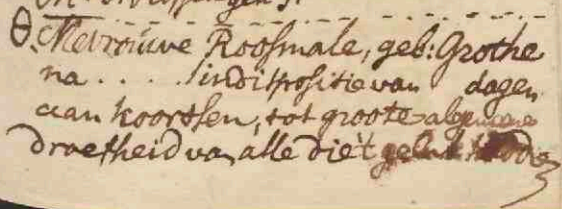 Mevrouwe Roosmale, geb: Grothe
na . . . . . indispositie van dagen
aan koortsen, tot groote algemeene
droefheid van alle die 't geluk hadde